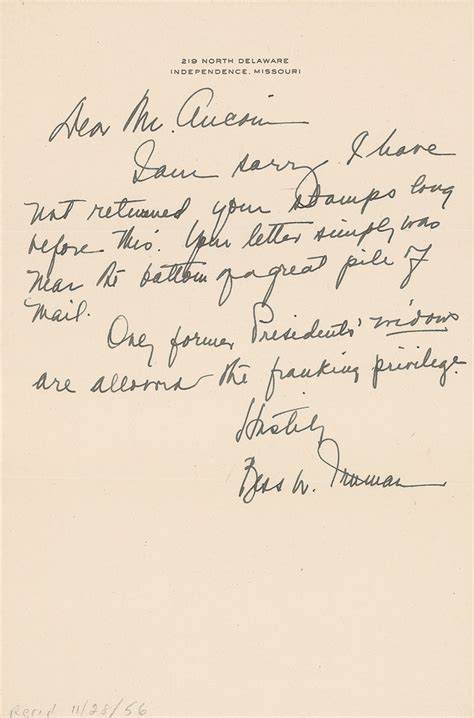 219 NORTH DELAWARE
INDEPENDENCE, MISSOURI
Dear Mr. Aucoin
I am sorry I have
not returned your stamps long
before this. Your letter simply was
near the bottom of a great pile of
mail.
Only former Presidents' widows
are allowed the franking privilege.
Hastily
Bess W. Truman
Recd 11/28/56